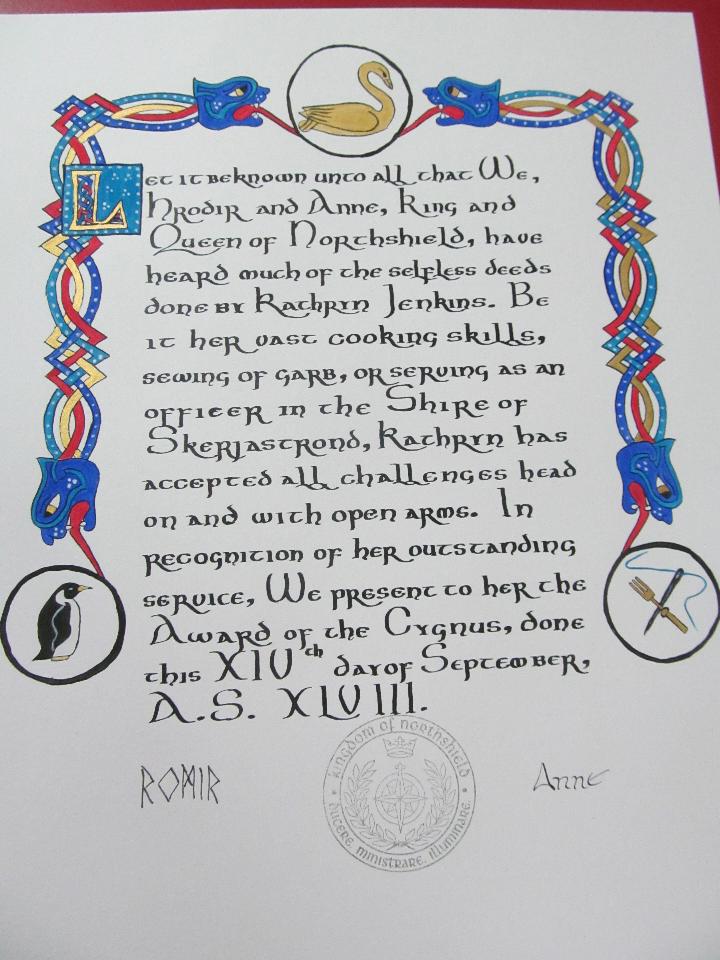 Let it be known unto all that We,
Hrodir and Anne, King and
Queen of Northshield, have
heard much of the selfless deeds
done by Kathryn Jenkins. Be
it her vast cooking skills,
sewing of garb, or serving as an
officer in the Shire of
Skerjastrond, Kathryn has
accepted all challenges head
on and with open arms. In
recognition of her outstanding
service, We present to her the
Award of the Cygnus, done
this XIVth day of September,
A.S. XLVIII.
kingdom of northshield
ducere, ministrare, illuminare
ᚱᛟᛗᛁᚱ
Anne